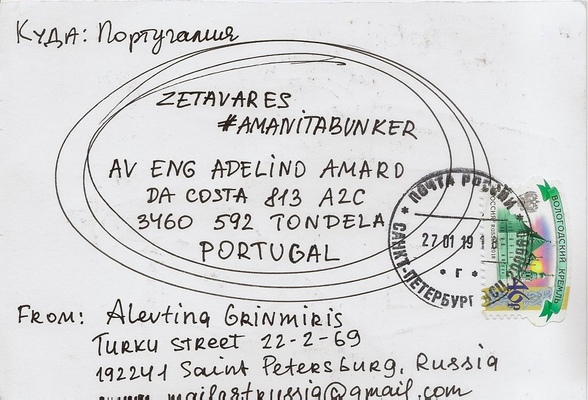 КУДА: Португалия
ZETAVARES
#AMANITABUNKER
AV ENG ADELINO AMARO
DA COSTA 813 A2C
3460 592 TONDELA
PORTUGAL
ПОЧТА РОССИИ
27 01 19 1
* Г *
САНКТ-ПЕТЕРБУРГ
ВОЛОГОДСКИЙ КРЕМЛЬ
FROM: Alevtina Grinmiris
Turku street 22-2-69
192241 Saint Petersburg, Russia
mailartrussia@gmail.com